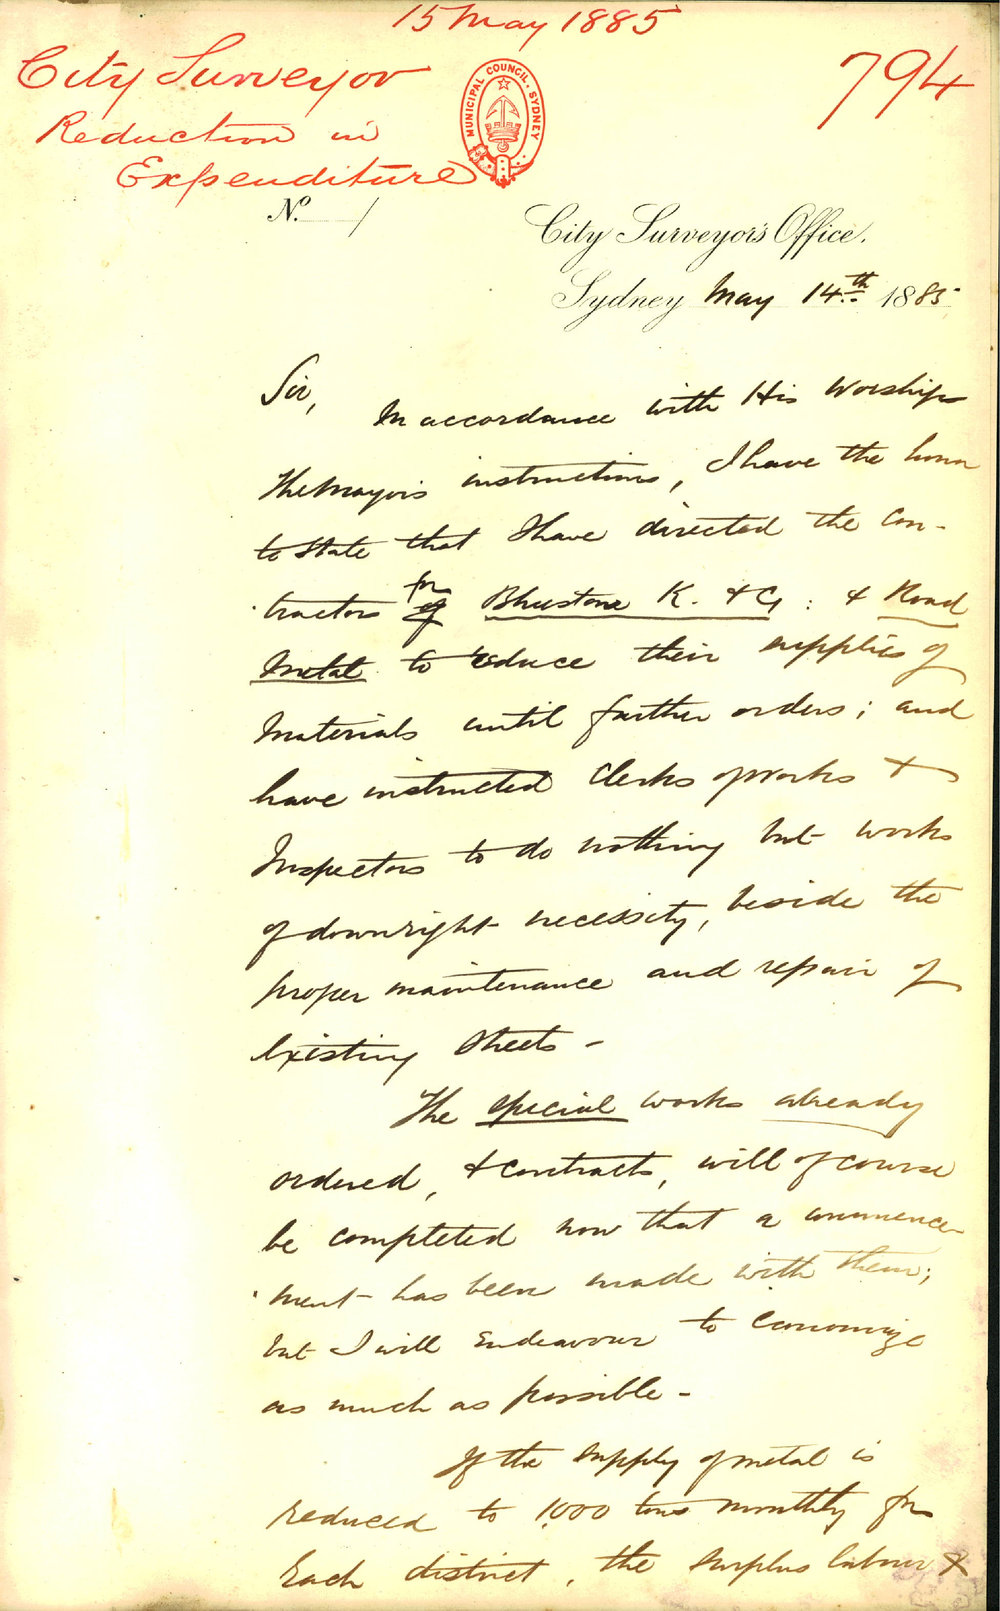 15 May 1885
City Surveyor
Reduction in
Expenditure
794
MUNICIPAL COUNCIL. SYDNEY
No. /
City Surveyor's Office.
Sydney May 14th 1885
Sir,
In accordance with His Worship
the Mayor's instructions, I have the honor
to state that I have directed the Con-
tractors for Bluestone K. & G: & Road
Metal to reduce their supplies of
Materials until further orders; and
have instructed Clerks of Works &
Inspectors to do nothing but works
of downright necessity, beside the
proper maintenance and repair of
existing streets -
The special works already
ordered, & contracts, will of course
be completed now that a commence
ment has been made with them;
but I will endeavour to Economize
as much as possible -
If the supply of metal is
reduced to 1000 tons monthly for
each district, the surplus labour &